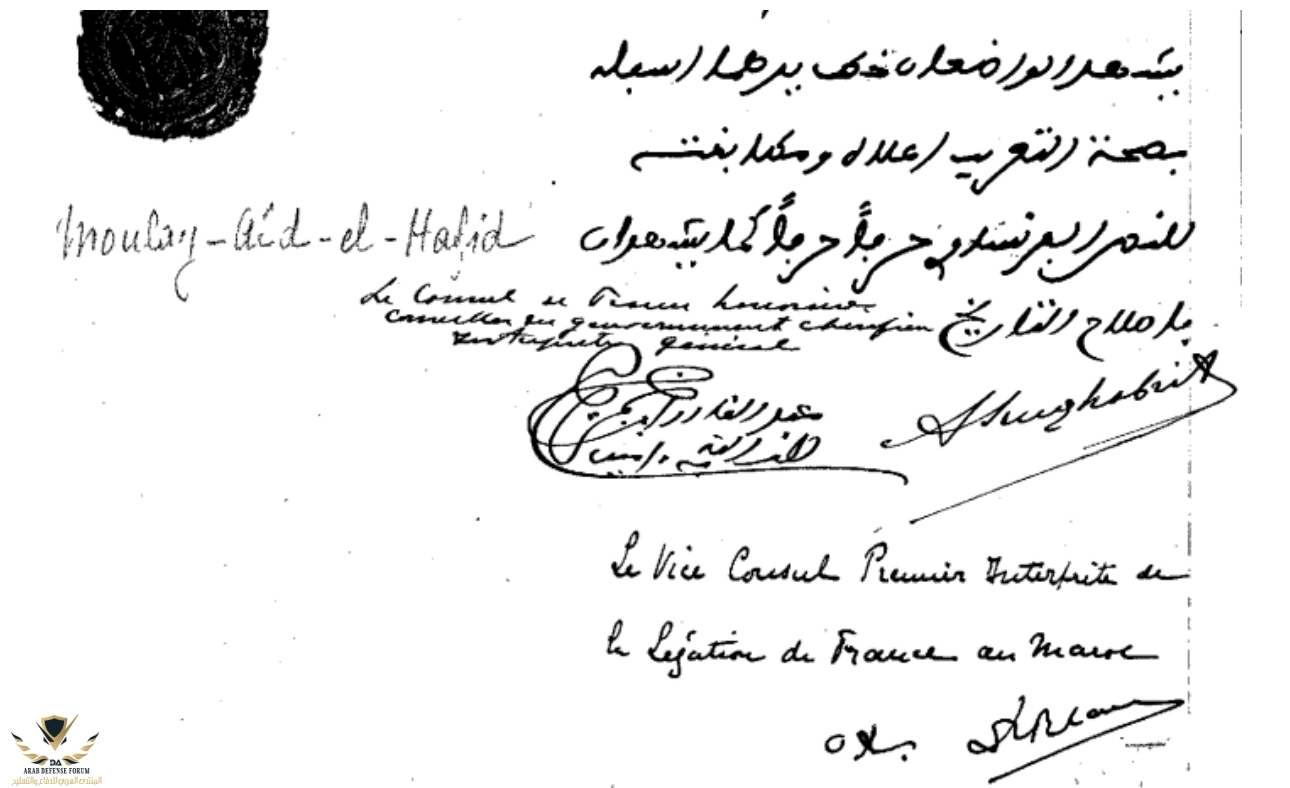 يشهد الواضعان خط يدهما اسفله
بصحة التعريب اعلاه ومطابقته
للنص الفرنساوي حرفاً حرفاً كما يشهدان
باصلاح التاريخ
Moulay-Aíd-el-Hafid
Le Consul de France honoraire
Conseiller du gouvernement cherifien
Interprète général
عبد القادر بن
Le Vice Consul Premier Interprète de
la Légation de France au Maroc
بلان
ARAB DEFENSE FORUM
المنتدى العربي للدفاع والتسليح